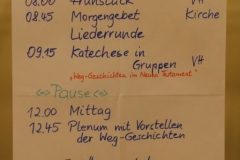 08.00 Frühstück VH
08.45 Morgengebet Kirche
Liederrunde
09.15 Katechese in
Gruppen VH
"Weg-Geschichten im Neuen Testament"
Pause
12.00 Mittag
12.45 Plenum mit Vorstellen
der Weg-Geschichten